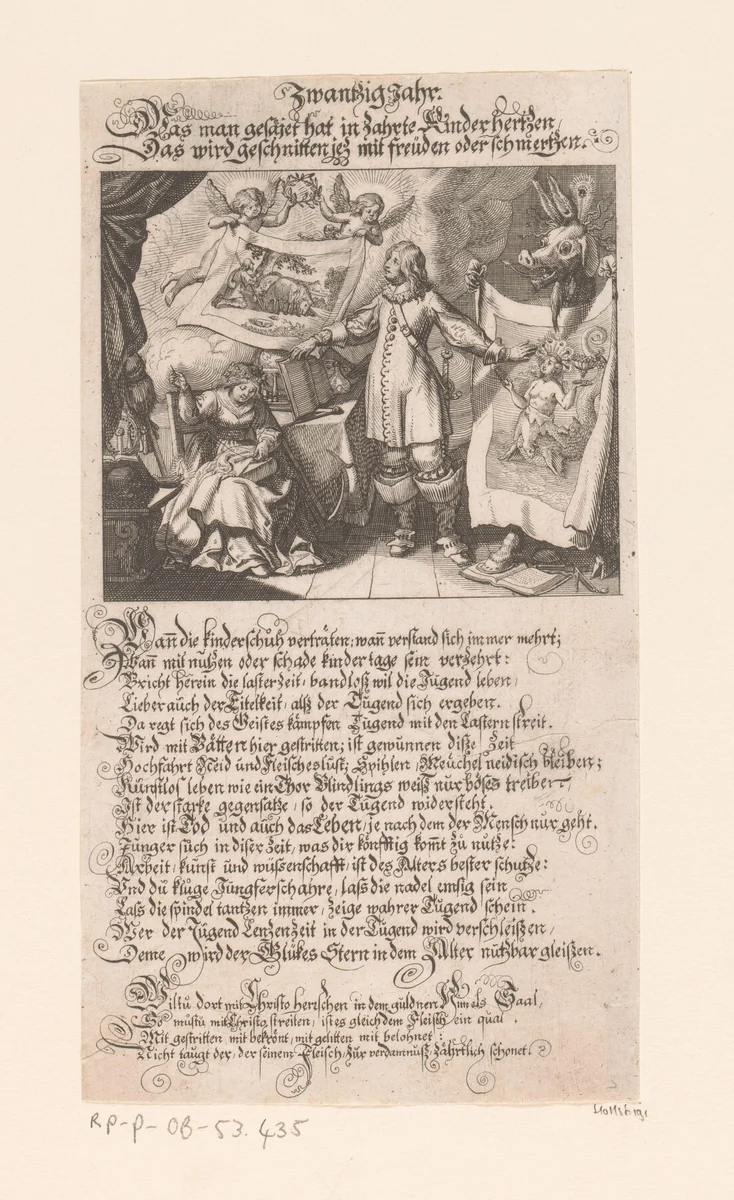 Zwantzig Jahr.
Was man gesäjet hat in Zahrte Kinder hertzen,
Das wird geschnitten jez mit freüden oder schmertzen.
Wañ die kinderschuh verträten; wañ verstand sich immer mehrt;
Wañ mit nutzen oder schade kinder tage sein verzehrt:
Bricht herein die laster Zeit, bandloß wil die Jugend leben,
Lieber auch der Eitelkeit, alß der Tugend sich ergeben.
Da regt sich des Geistes kämpfen Tugend mit den Lastern streit.
Wird mit Bätten hier gestritten; ist gewunnen diße Zeit
Hochfahrt Neid und Fleischeslust; Spitzlen, Meüchel neidisch bleiben;
Kunstlos leben wie ein Thor Blindlings weiß nur böses treiben,
Ist der starke gegensatze, so der Tugend widersteht.
Hier ist Tod und auch das Leben, je nach dem der Mensch nur geht.
Junger such in diser Zeit, was dir könfftig komt zu nutze:
Arbeit, kunst und wüssenschafft, ist des Alters bester schutze:
Und du kluge Jungferschahre, laß die nadel emsig sein
Laß die spindel tantzen immer, zeige wahrer Tugend schein.
Wer der Jugend Lenzen Zeit in der Tugend wird verschleißen,
Deme wird der Glükes Stern in dem Alter nutzbar gleißen.
Wiltu dort mit Christo herrschen in dem güldnen Himels Saal,
So mustu mit Christo streiten, ist es gleich dem Fleisch ein qual.
Mit gestritten mit bekrönt, mit gelitten mit belohnet:
Nicht taugt der, der seinem Fleisch, zur verdamnuß, zährtlich schonet.
RP-P-OB-53.435